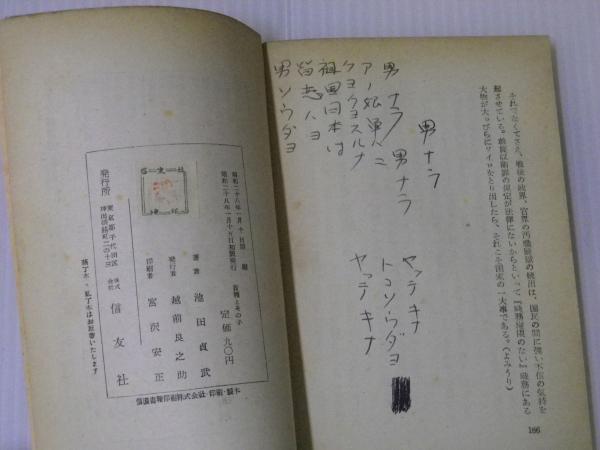 それでなくてさえ、戦後の政界、官界の汚職続出は、国民の間に強い不信の気持を
起させている。斡旋収賄罪の規定が法律にないからといって『職務権限のない』職務にある
大物が大っぴらにワイロをとり出したら、それこそ国家の一大事である。(よみうり)
166
男ナラ 男ナラ
ヤッテキナ
トコソウダヨ
ヤッテキナ
男ナラ
クヨクヨスルナ
祖国日本は
男ソウダヨ
昭和二十八年一月十日印刷
昭和二十八年一月十五日初版発行
定価 九〇円
著者 池田貞武
発行者 越前良之助
印刷者 宮沢安正
発行所
東京都千代田区
株式会社 信友社
落丁本・乱丁本はお取替いたします
信濃毎日印刷株式会社・印刷・製本